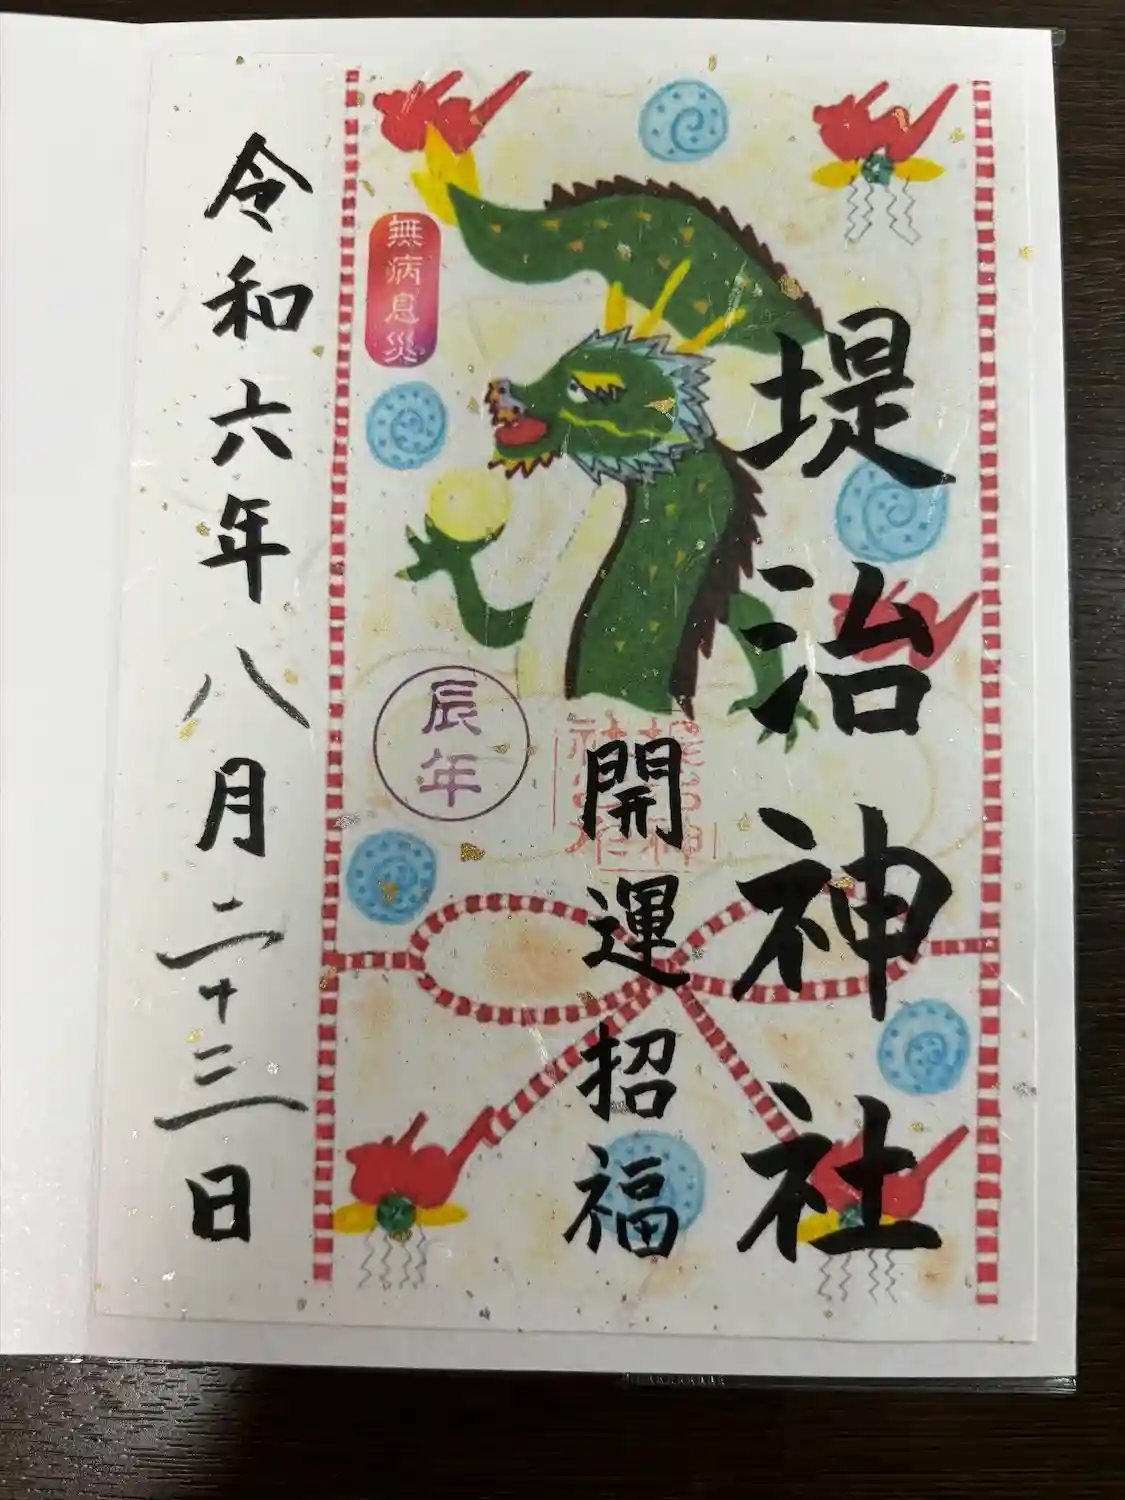 堤治神社
開運招福
堤治神社
無病息災
辰年
令和六年八月二十三日